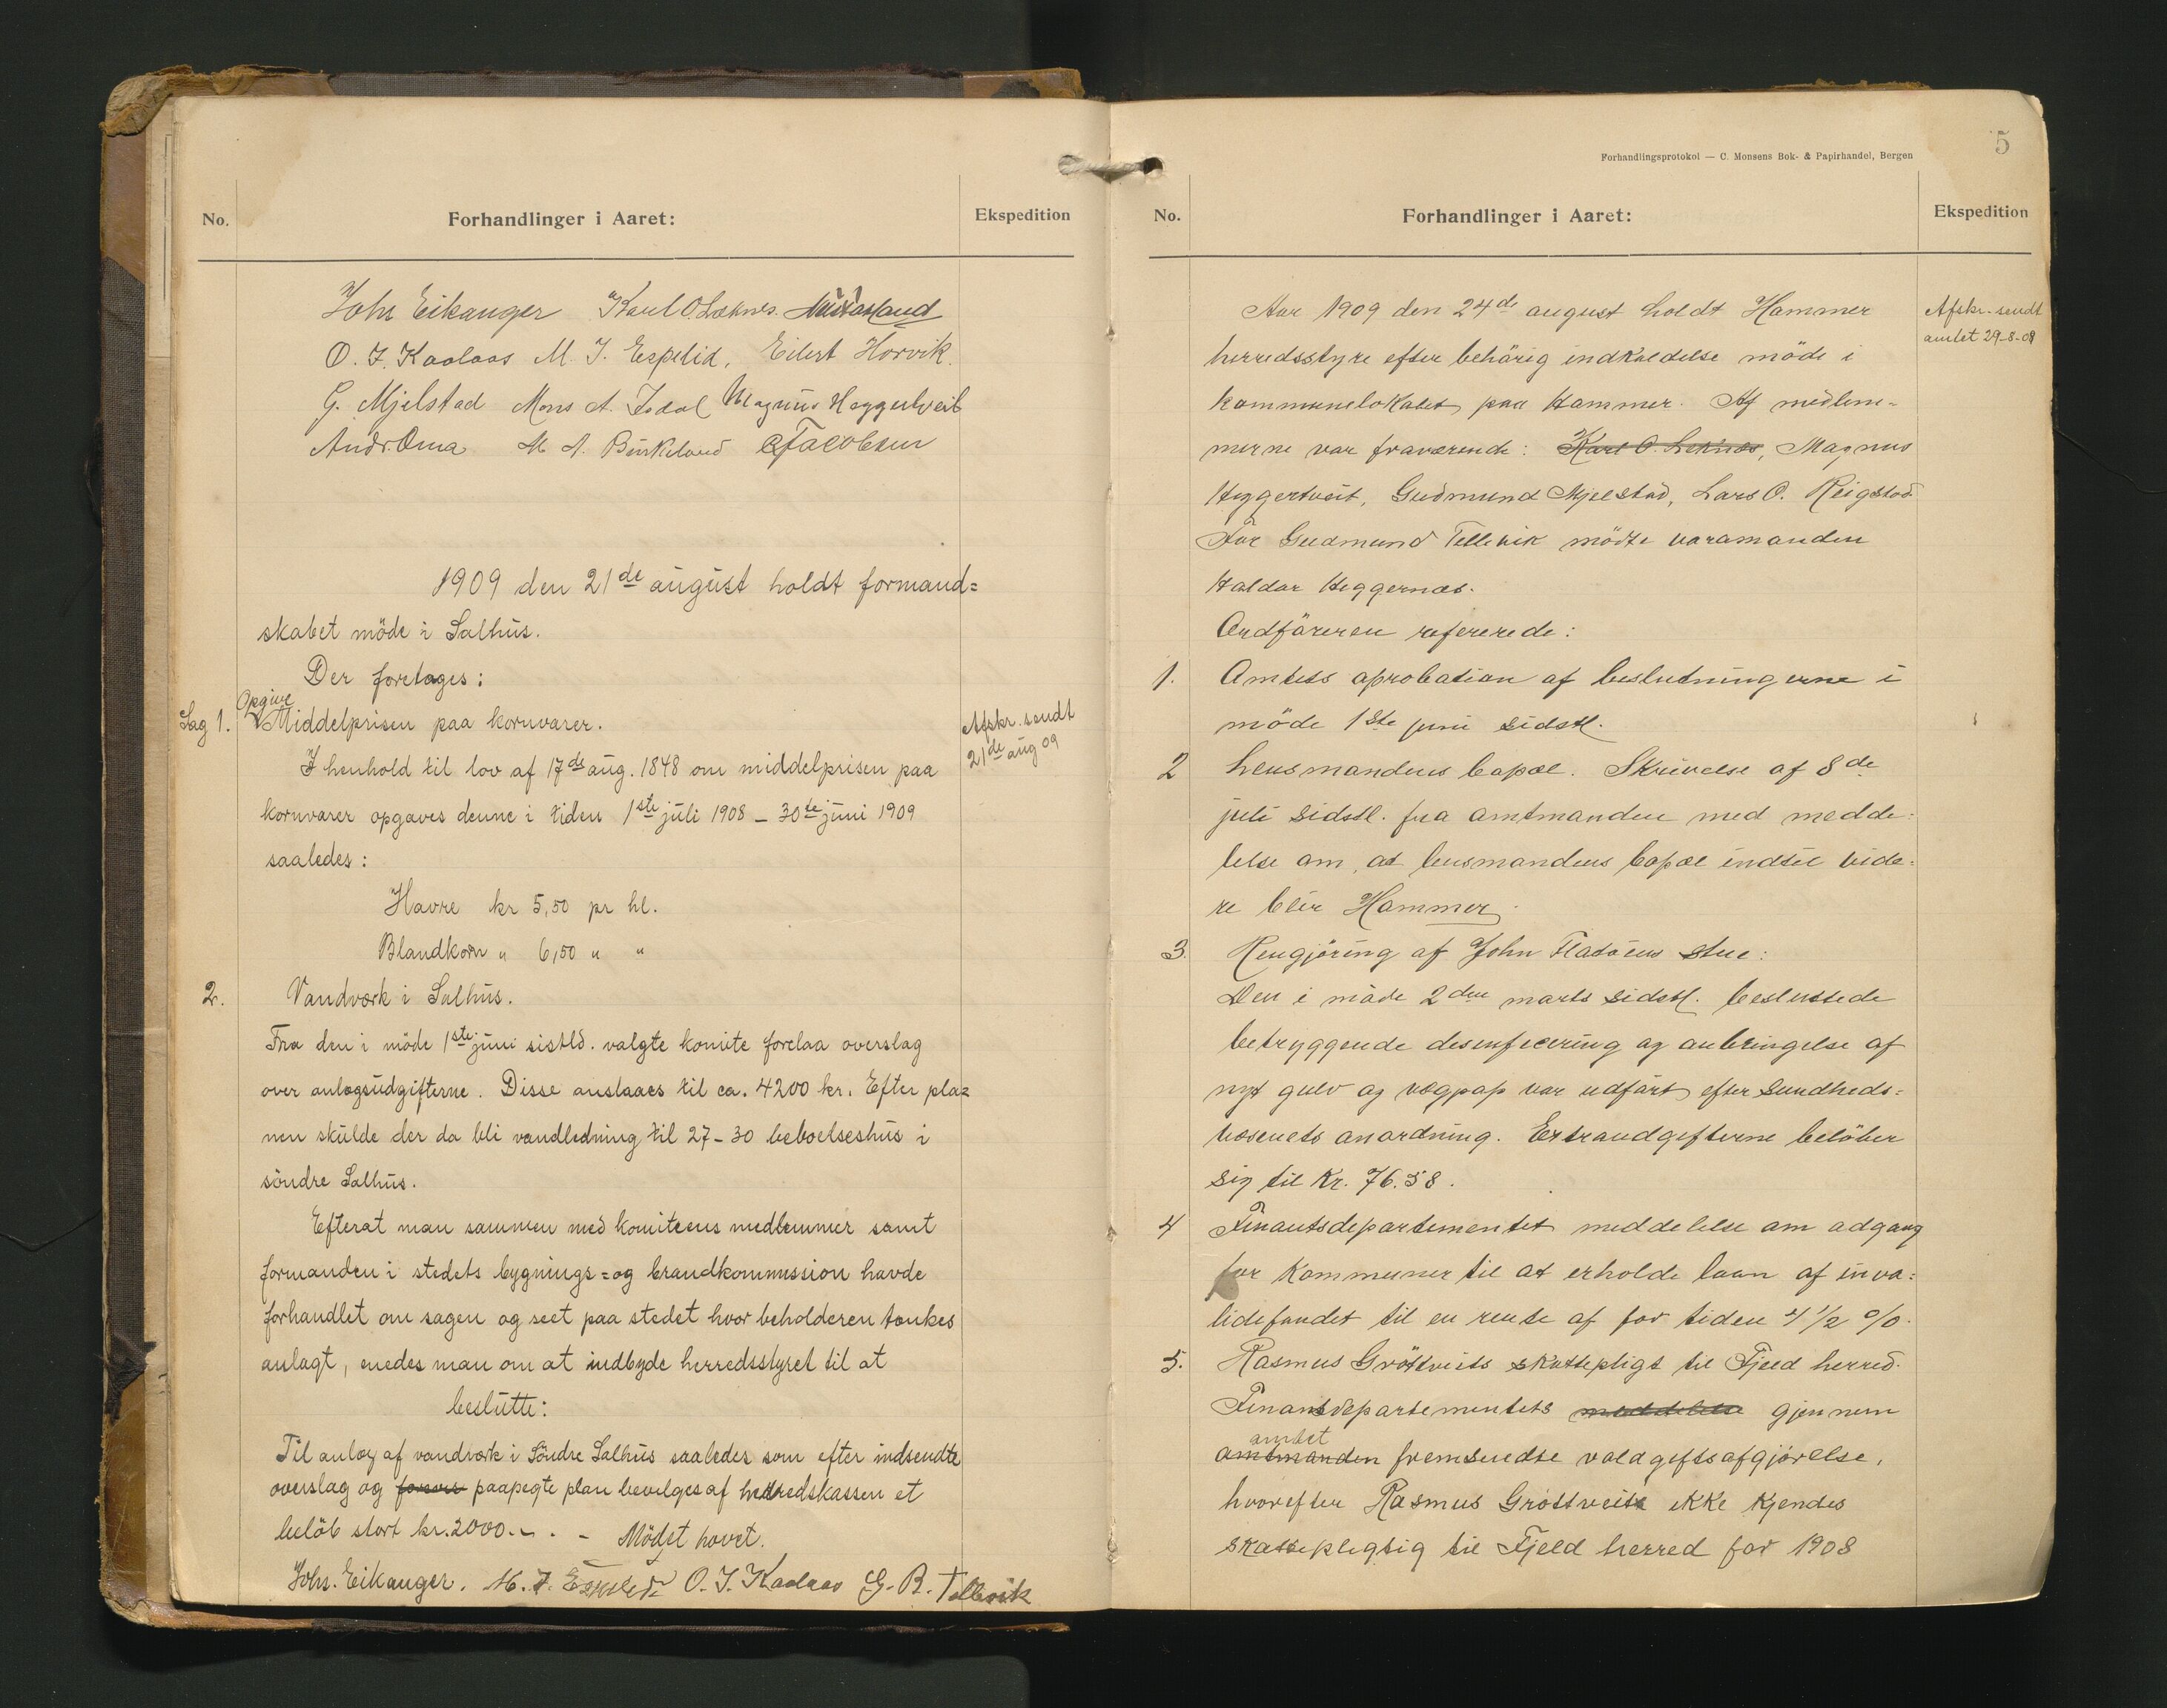 No.
Forhandlinger i Aaret:
Ekspedition
Johs Eikanger Karl O. Leknes.
O. J. Kaalaas M. J. Espelid, Eilert Horvik.
G. Mjelstad Mons A. Isdal Magnus Heggertveit
Andr. Oma M. A. Birkeland Jacobsen
1909 den 21de august holdt formand=
skabet möde i Salhus.
Der foretages:
Opgive
Sag 1. Middelprisen paa kornvarer.
Afskr. sendt
21de aug 09
I henhold til lov af 17de aug. 1848 om middelprisen paa
kornvarer opgaves denne i tiden 1ste juli 1908 – 30te juni 1909
saaledes:
Havre kr 5,50 pr hl.
Blandkorn „ 6,50 „ „
2. Vandværk i Salhus.
Fra den i möde 1ste juni sistld. valgte komite forelaa overslag
over anlægsudgifterne. Disse anslaaes til ca. 4200 kr. Efter pla=
nen skulde der da bli vandledning til 27–30 beboelseshus i
söndre Salhus.
Efterat man sammen med komiteens medlemmer samt
formanden i stedets bygnings= og brandkommission havde
forhandlet om sagen og seet paa stedet hvor beholderen tænkes
anlagt, enedes man om at indbyde herredsstyret til at
beslutte:
Til anlæg af vandværk i Söndre Salhus saaledes som efter indsendte
overslag og paapegte plan bevilges af herredskassen et
belöb stort kr. 2000.-. - Mödet hævet.
Johs. Eikanger. M. J. Espelid O. J. Kaalaas G. R. Tellevik
Forhandlingsprotokol — C. Monsens Bok- & Papirhandel, Bergen
5
No.
Forhandlinger i Aaret:
Ekspedition
Aar 1909 den 24de august holdt Hammer
Afskr. sendt
amtet 29-8-09
herredsstyre efter behörig indkaldelse möde i
kommunelokalet paa Hammer. Af medlem-
merne var fraværende: Karl O. Leknes, Magnus
Heggertveit, Gudmund Mjelstad, Lars O. Reigstad
For Gudmund Tellevik mödte varamanden
Haldor Heggernæs.
Ordföreren refererede:
1. Amtets aprobation af beslutningerne i
möde 1ste juni sidstl.
2 Lensmandens bopæl. Skrivelse af 8de
juli sidstl. fra amtmanden med medde=
lelse om, at lensmandens bopæl indtil vide=
re blir Hammer.
3. Rengjöring af John Fladöens stue:
Den i möde 2den marts sidstl. besluttede
betryggende desenfecering og anbringelse af
nyt gulv og vægpap var udfört efter sundheds=
væsenets anordning. Extraudgifterne belöber
sig til Kr. 76.58.
4 Finantsdepartementet meddelelse om adgang
for kommuner til at erholde laan af inva=
lidefondet til en rente af for tiden 4 1/2 %.
5. Rasmus Gröttveits skattepligt til Fjeld herred.
Finansdepartementets meddelelse gjennem
amtet
amtmanden fremsendte voldgiftsafgjörelse,
hvorefter Rasmus Gröttveit ikke kjendes
skattepligtig til Fjeld herred for 1908